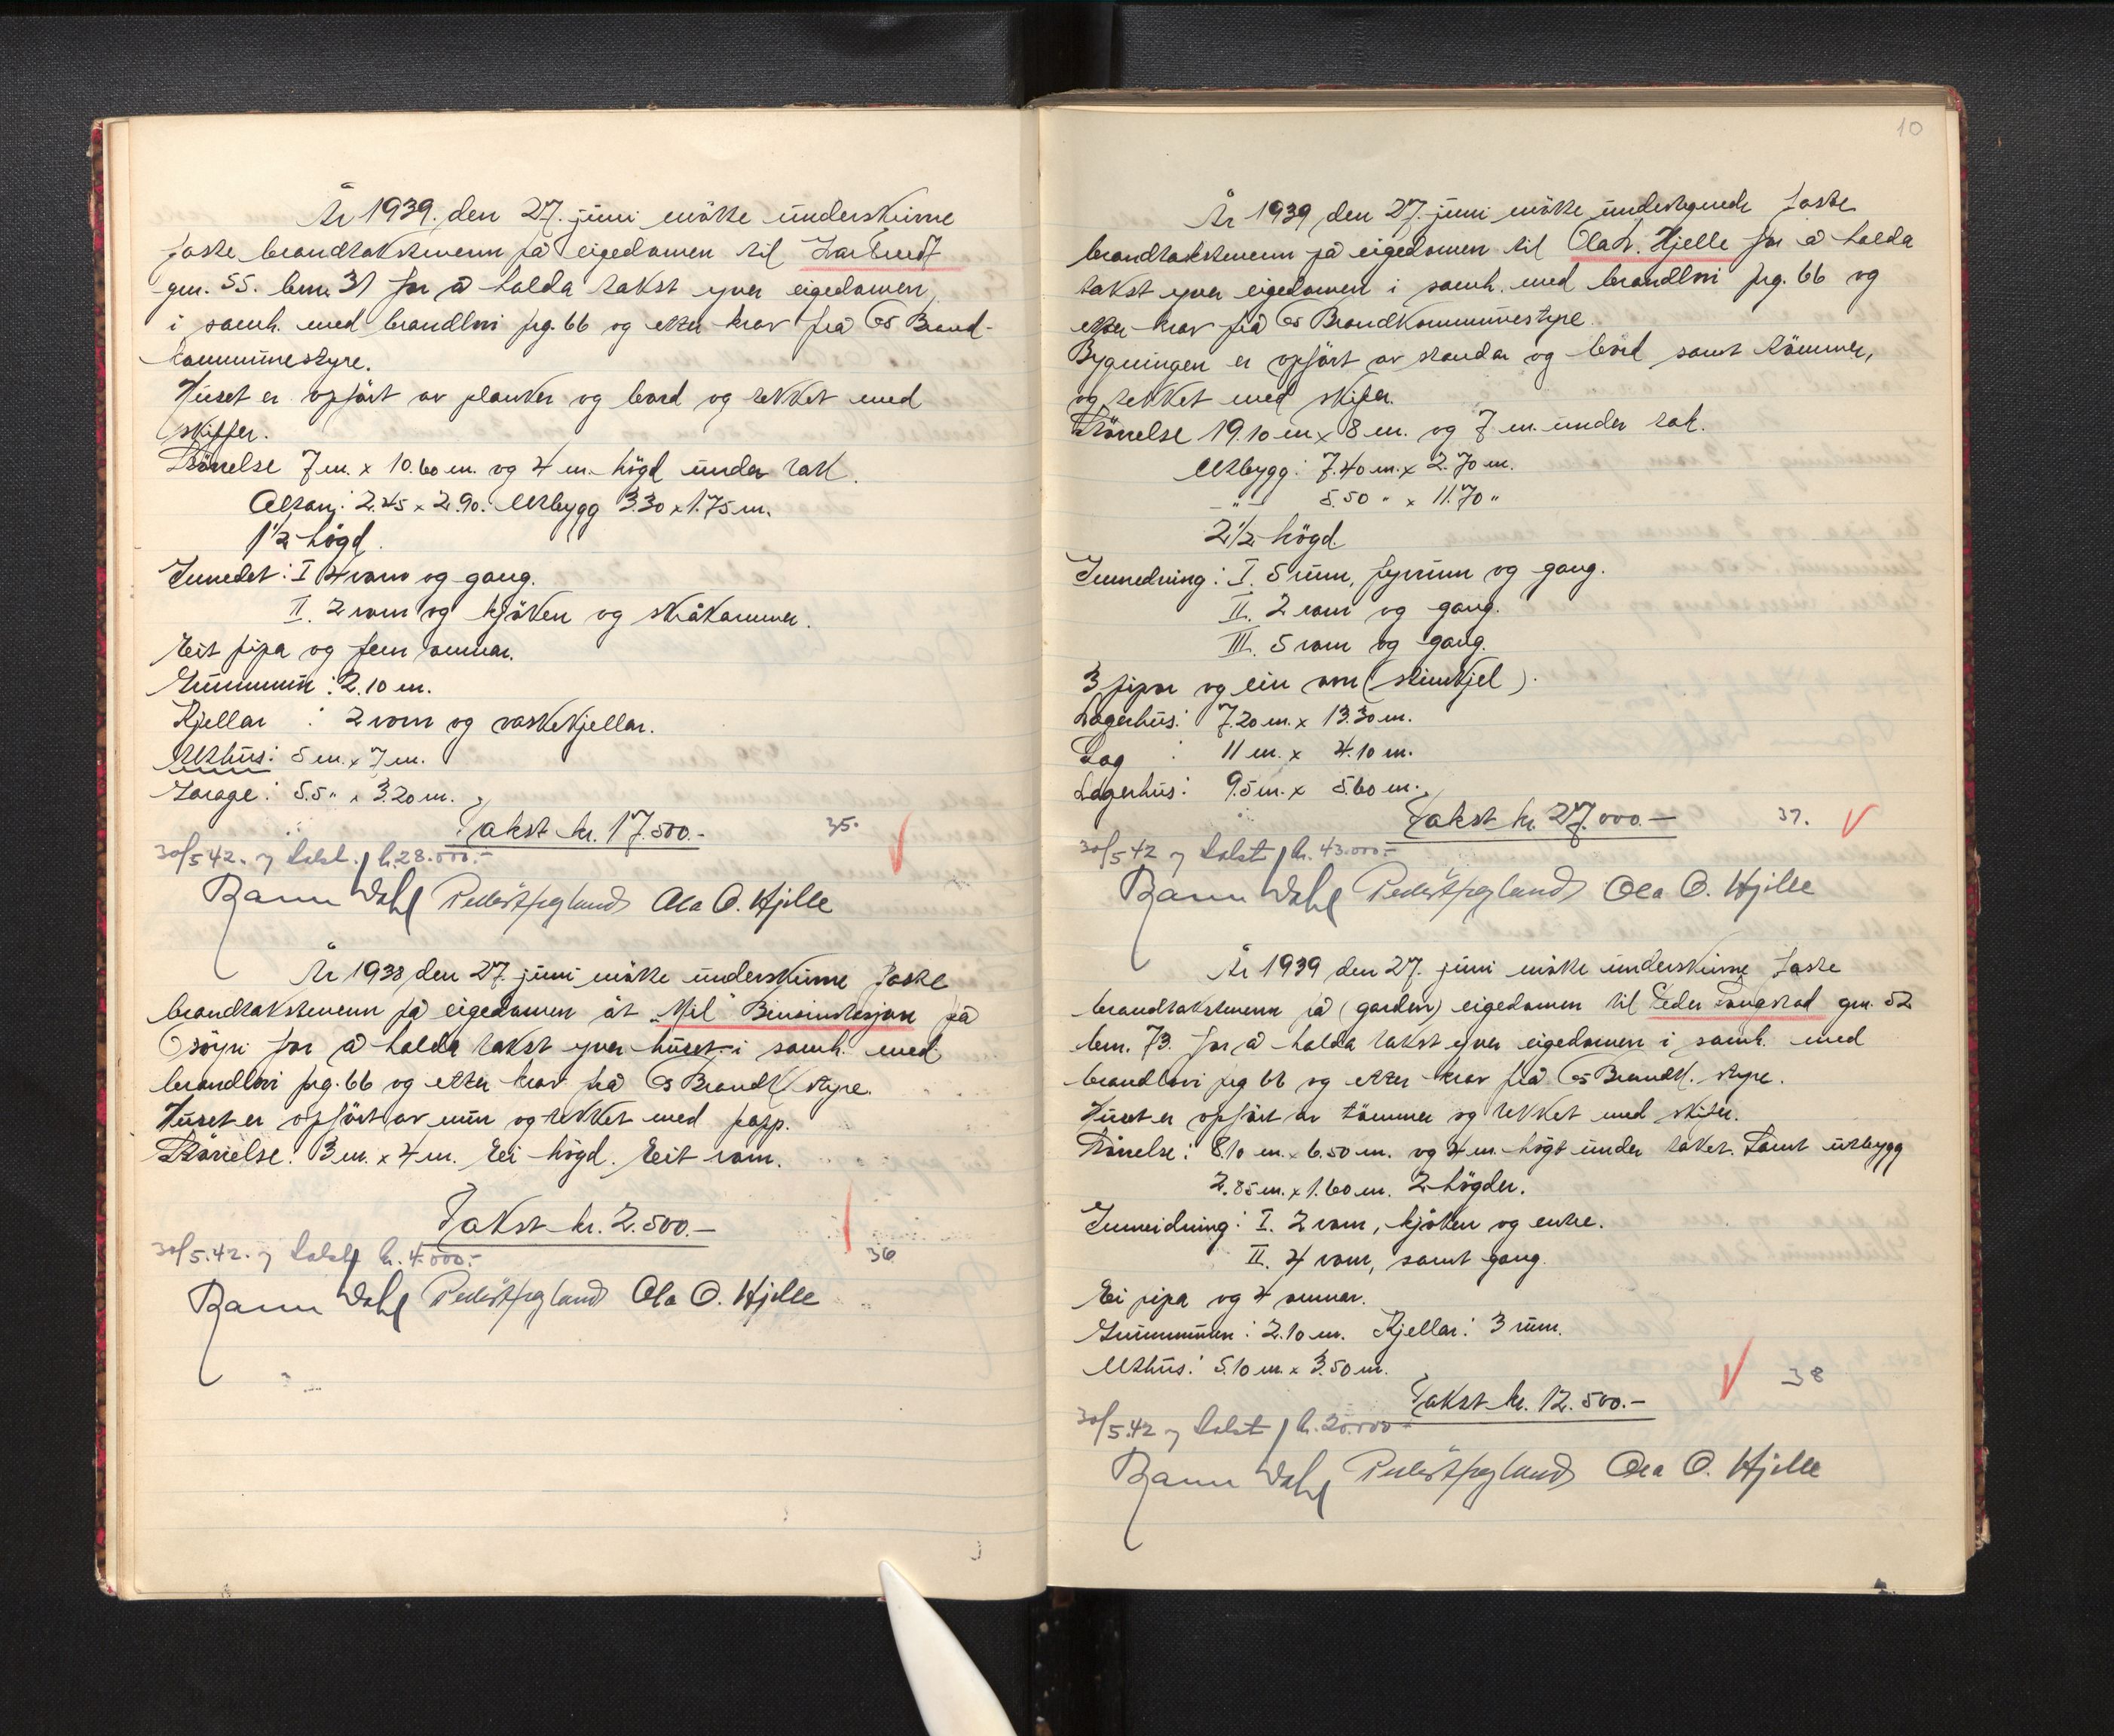 År 1939. den 27. juni møtte underskrivne
faste brandtakstmenn på eigedomen til
gnr. 55. bnr. 31 for å halda takst yver eigedomen,
i samh. med brandlovi prg. 66 og etter krav frå Os Brand-
kommunestyre.
Huset er opført av planker og bord og tekket med
skiffer.
Störrelse 7 m. x 10.60 m. og 4 m. högd under tak.
Altan: 2.45 x 2.90. Utbygg 3.30 x 1.75 m.
1 1/2 högd.
Innredet: I 4 rom og gang.
II. 2 rom og kjöken og skråkammer.
Eit pipa og fem omnar.
Grunnmur: 2.10 m.
Kjellar : 2 rom og vaskekjellar.
Uthus: 5 m. x 7 m.
Garage: 5.5 " x 3.20 m.
Takst kr. 17.500.-
35.
30/5 42. ny takst kr. 28.000.-
Dahl Ola O. Hjelle
År 1938 den 27. juni møtte underskrivne faste
brandtakstmenn på eigedomen åt "Mil" Bensinstasjon på
Osöyri for å halda takst yver huset i samh. med
brandlovi prg. 66 og etter krav frå Os Brandk. styre.
Huset er opfört av mur og tekket med papp.
Störrelse: 3 m. x 4 m. Ei högd. Eit rom.
Takst kr. 2.500.-
30/5.42. ny takst kr. 4.000.-
36
Dahl Ola O. Hjelle
10
År 1939 den 27. juni møtte undertegnede faste
brandtakstmenn på eigedomen til Ola L. Hjelle for å halda
takst yver eigedomen i samh. med brandlovi prg. 66 og
etter krav frå Os Brandkommunestyre.
Bygningen er opfört av standar og bord samt tömmer,
og tekket med skifer.
Störrelse 19.10 m x 8 m. og 7 m. under tak.
Utbygg: 7.40 m. x 2.70 m.
-"- 5.50 " x 11.70 "
2 1/2 högd.
Innredning: I. 5 rum, fyrrum og gang.
II. 2 rom og gang.
III. 5 rom og gang.
3 pipor og ein omn (
Lagerhus: 7.20 m. x 13.30 m.
: 11 m. x 4.10 m.
Lagerhus: 9.5 m. x 5.60 m.
Takst kr. 27.000.-
37.
30/5 42 ny takst kr. 43.000.-
Dahl Ola O. Hjelle
År 1939 den 27. juni møtte underskrivne faste
brandtakstmenn på (garden) eigedomen til Peder Tangstad gnr. 52
bnr. 73. for å halda takst yver eigedomen i samh. med
brandlovi prg 66 og etter krav frå Os Brandk. styre.
Huset er opfört av tömmer og tekket med skifer.
Störrelse: 8.10 m. x 6.50 m. og 4 m. högt under taket. Samt utbygg
2.85 m. x 1.60 m. 2 högder.
Innreidning: I. 2 rom, kjöken og entre.
II. 4 rom, samt gang.
Ei pipa og 4 omnar.
Grunnmuren: 2.10 m. Kjellar: 3 rum.
Uthus: 5.10 m. x 3.50 m.
38
Takst kr. 12.500.-
30/5.42 ny takst kr. 20.000-
Dahl Ola O. Hjelle